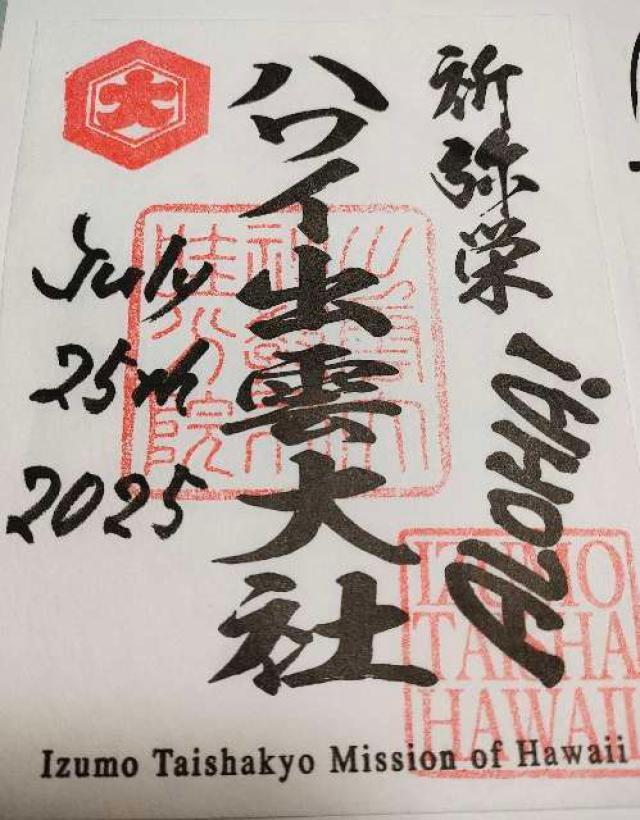 祈弥栄
ALOHA!
ハワイ出雲大社
July
25th
2025
大
IZUMO
TAISHA
HAWAII
Izumo Taishakyo Mission of Hawaii